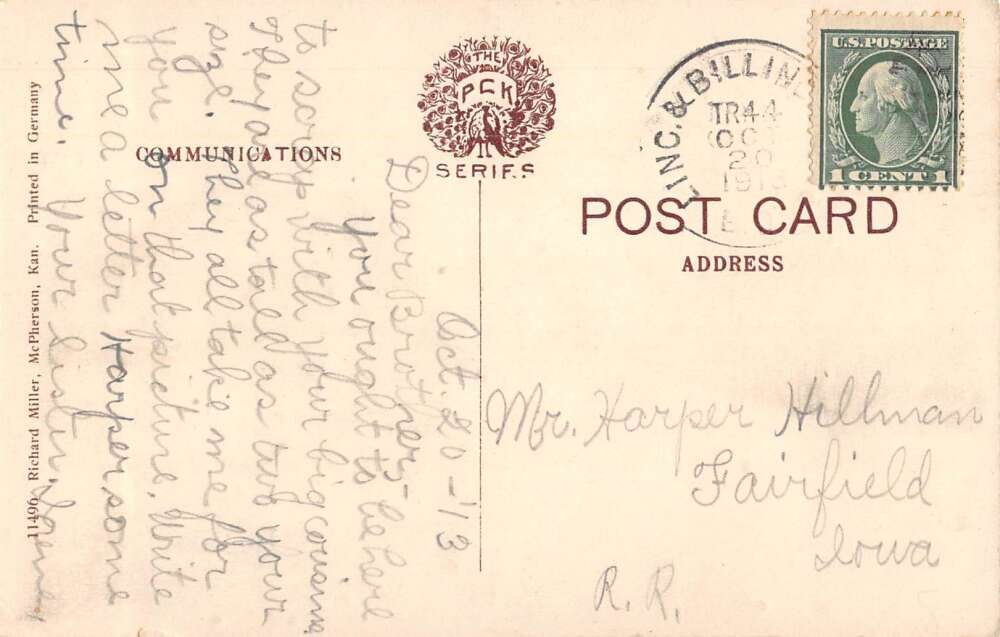 11496 Richard Miller, McPherson, Kan. Printed in Germany
COMMUNICATIONS
THE
PCK
SERIES
Oct. 20 - '13
Dear Brother,-
You ought to be here
to scrap with your big cousins
They are as tall as two your
size. They all take me for
you on that picture. Write
me a letter Harper some
time. Your sister,
LINC. & BILLIN
TR 44
OCT
20
1913
U.S. POSTAGE
1 CENT 1
POST CARD
ADDRESS
Mr. Harper Hillman
Fairfield
Iowa
R. R.